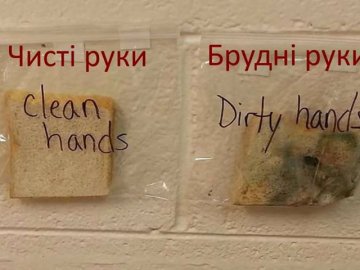 Чисті руки
Clean
hands
Брудні руки
Dirty hands